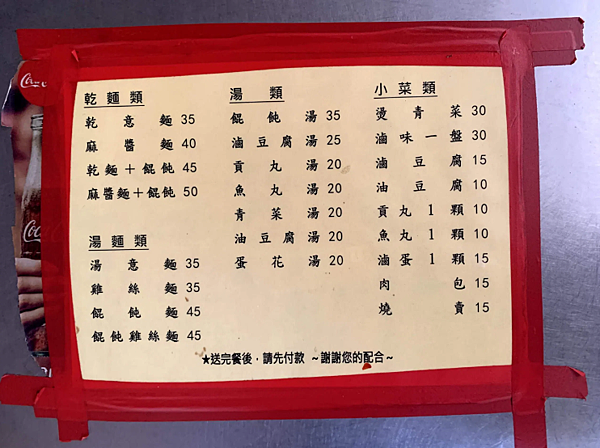 乾麵類
乾意麵 35
麻醬麵 40
乾麵＋餛飩 45
麻醬麵＋餛飩 50
湯麵類
湯意麵 35
雞絲麵 35
餛飩麵 45
餛飩雞絲麵 45
湯類
餛飩湯 35
滷豆腐湯 25
貢丸湯 20
魚丸湯 20
青菜湯 20
油豆腐湯 20
蛋花湯 20
小菜類
燙青菜 30
滷味一盤 30
滷豆腐 15
油豆腐 10
貢丸1顆 10
魚丸1顆 10
滷蛋1顆 15
肉包 15
燒賣 15
★送完餐後，請先付款 ~謝謝您的配合~
Coca
Coca